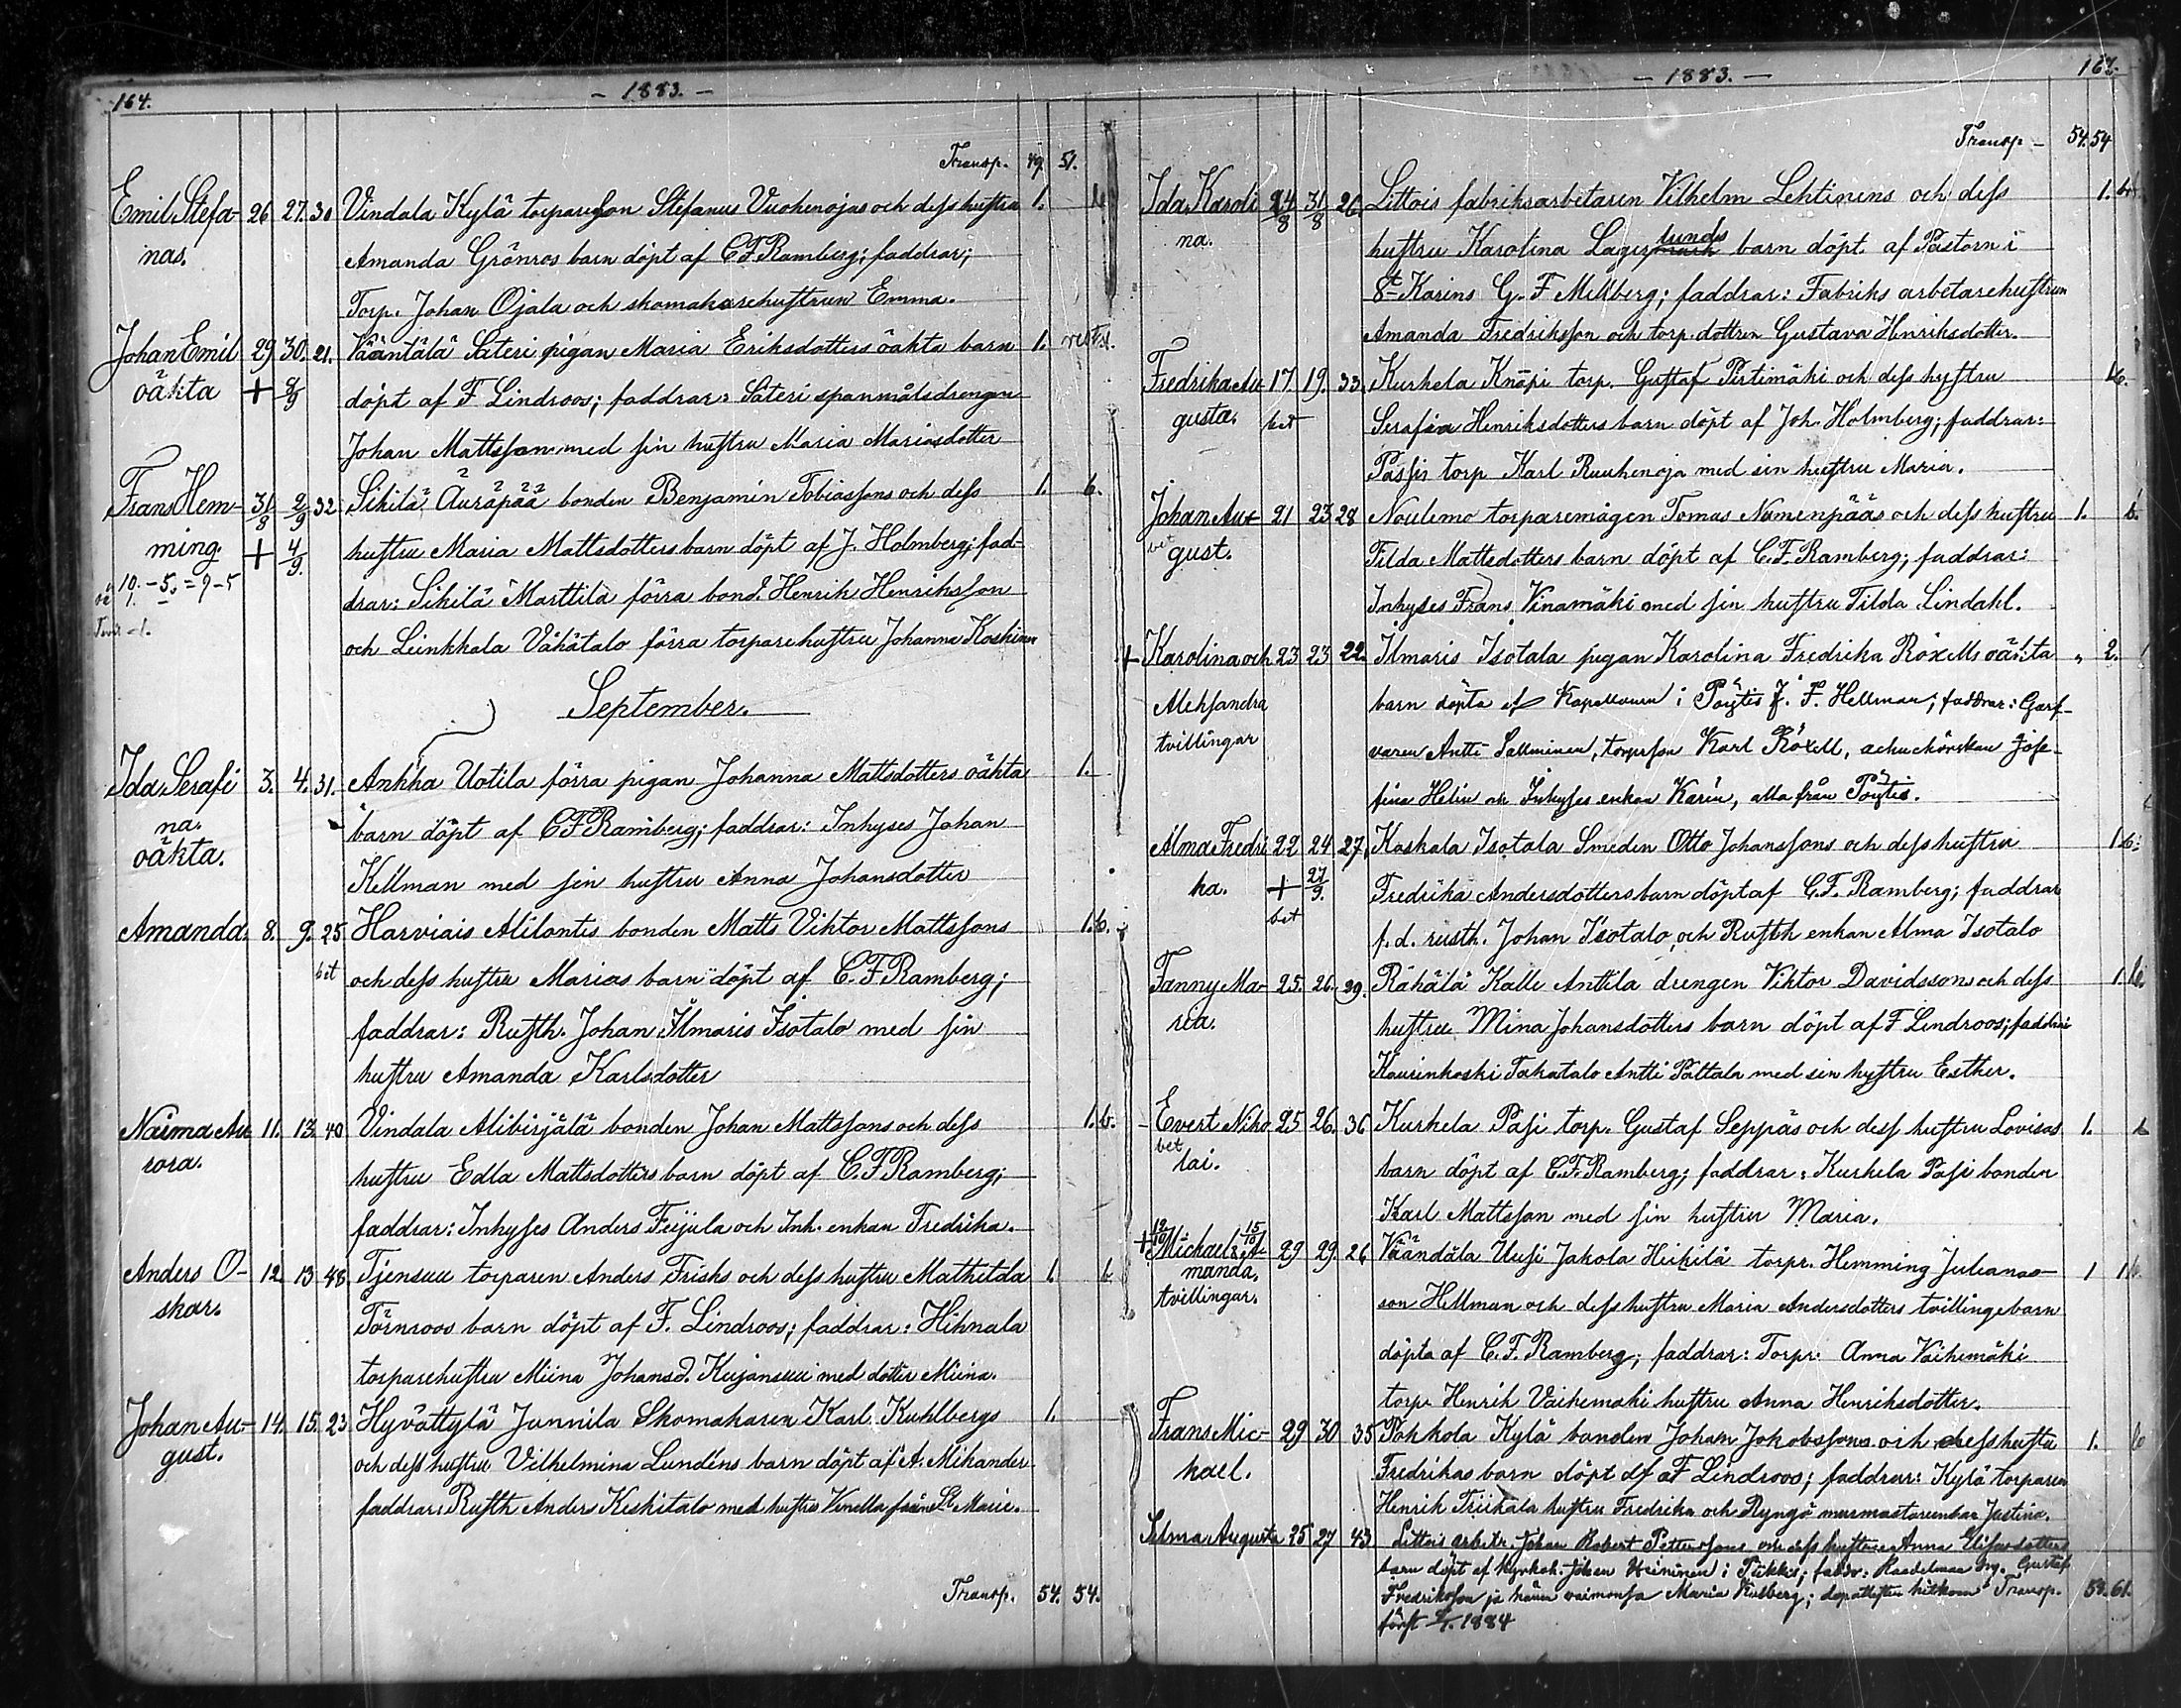 164.
- 1883. -
Transp. 49. 51.
Emil Stefa- 26 27. 30 Vindala Kylä torpareson Stefanus Vuohenojas och dess hustru 1. b.
nas. Amanda Grönros barn döpt af C F Ramberg; faddrar;
Torp. Johan Ojala och skomakarehustrun Emma.
Johan Emil 29 30. 21. Vääntälä Säteri pigan Maria Eriksdotters oäkta barn 1.
oäkta + 8/9 döpt af F Lindroos; faddrar: Säteri spanmålsdrengen
Johan Mattsson med sin hustru Maria Mariasdotter
Frans Hem- 31/8 2/9 32 Sikilä Äuräpää bonden Benjamin Tobiassons och dess 1. b.
ming. + 4/9. hustru Maria Mattsdotters barn döpt af J. Holmberg; fad-
10. - 5. = 9 - 5
drar: Sikilä Marttila förra bond. Henrik Henriksson
och Leinkkala Vähätalo förra torparehustru Johanna Koskinen
September.
Ida Serafi 3. 4. 31. Ankka Uotila förra pigan Johanna Mattsdotters oäkta 1.
na. barn döpt af C F Ramberg; faddrar: Inhyses Johan
oäkta.
Kellman med sin hustru Anna Johansdotter
Amanda. 8. 9. 25 Harviais Alilontis bonden Matts Viktor Mattssons 1. b.
bet och dess hustru Marias barn döpt af C. F Ramberg;
faddrar: Rusth. Johan Ilmaris Isotalo med sin
hustru Amanda Karlsdotter
Naima Au 11. 13. 40 Vindala Alibirjälä bonden Johan Mattssons och dess 1. b.
rora. hustru Edla Mattsdotters barn döpt af C. F Ramberg;
faddrar: Inhyses Anders Feijula och Inh. enkan Fredrika.
Anders O- 12. 13 48 Tjensuu torparen Anders Frisks och dess hustru Mathilda 1. b
skar. Törnroos barn döpt af F. Lindroos; faddrar: Hihnala
torparehustru Miina Johansd. Kujansuu med dotter Miina.
Johan Au- 14. 15. 23 Hyvättylä Junnila Skomakaren Karl Kuhlbergs 1.
gust. och dess hustru Vilhelmina Lundéns barn döpt af A. Mikander
faddrar: Rusth Anders Keskitalo med hustru Vendla från St Marie.
Transp. 54. 54.
- 1883. -
Transp - 54. 54
Ida Karoli 24/8 31/8 26. Littois fabriksarbetaren Vilhelm Lehtinens och dess 1. b.
na. hustru Karolina Lagerlunds barn döpt af Pastorn i
St Karins G. F Mellberg; faddrar: Fabriks arbetarehustrun
Amanda Fredriksson och torp. dottren Gustava Henriksdotter.
Fredrika Au- 17. 19. 33. Kurkela Knäpi torp. Gustaf Pirtimäki och dess hustru 1. b.
gusta. bet Serafia Henriksdotters barn döpt af Joh. Holmberg; faddrar:
Passis torp Karl Ruuhenoja med sin hustru Maria.
Johan Au- 21 23 28 Noulemo torparemågen Tomas Numenpääs och dess hustru 1. b.
bet gust. Tilda Mattsdotters barn döpt af C. F. Ramberg; faddrar:
Inhyses Frans Vinamäki med sin hustru Tilda Lindahl.
+ Karolina och 23 23 22. Ilmaris Isotala pigan Karolina Fredrika Röxells oäkta „ 2.
Aleksandra barn döpta af Kapellanen i Pöytis J. F. Hellman; faddrar: Garf-
tvillingar varen Antti Salminen, torpareson Karl Röxell, Jose-
fina Helin och Inhyses enkan Karin, alla från Pöytis.
Alma Fredri 22 24 27. Kaskala Isotala Smeden Otto Johanssons och dess hustru 1. b.
ka. + 27/9. Fredrika Andersdotters barn döpt af C. F. Ramberg; faddrar
bet
f. d. rusth. Johan Isotalo, och Rusth enkan Alma Isotalo
Fanny Ma- 25. 26. 39. Rähälä Kalle Anttila drengen Viktor Davidssons och dess 1. b.
ria. hustru Mina Johansdotters barn döpt af F Lindroos; faddrar
Kaurinkoski Takatalo Antti Pältala med sin hustru Esther.
Evert Niko 25 26. 36 Kurkela Päsi torp. Gustaf Seppäs och dess hustru Lovisas 1. b
bet lai. barn döpt af C. F. Ramberg; faddrar: Kurkela Pasi bonden
Karl Mattsson med sin hustru Maria.
+ 12/10 15/10 Michael & A- 29 29. 26 Väändälä Uusi Jakola Heikilä torpr. Hemming Julianas- 1 1. b.
manda.
tvillingar. son Hellman och dess hustru Maria Andersdotters tvillingebarn
döpta af C. F. Ramberg; faddrar: Torpr. Anna Vaihemäki
torp. Henrik Vaihemäki hustru Anna Henriksdotter.
Frans Mic- 29 30 35 Pakkola Kylä bonden Johan Jakobssons och dess hustru 1. b
hael. Fredrikas barn döpt af F Lindroos; faddrar: Kylä torparen
Henrik Triikala hustru Fredrika och Ryngö Justina.
Selma Augusta 25 27 43 Littois arbetr. Johan Robert Petterssons och dess hustru Anna Elisasdotters
barn döpt af Kyrkoh. Johan i Piikkis; faddr: Gustaf
Fredriksson ja hänen vaimonsa Maria; dopattesten hitkom Transp. 58. 61.
först 1884